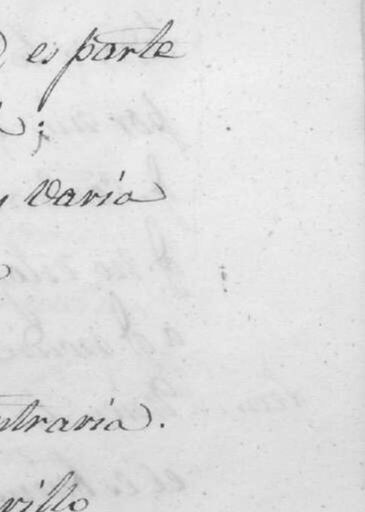 es parte
;
varia
ntraria.
rillo